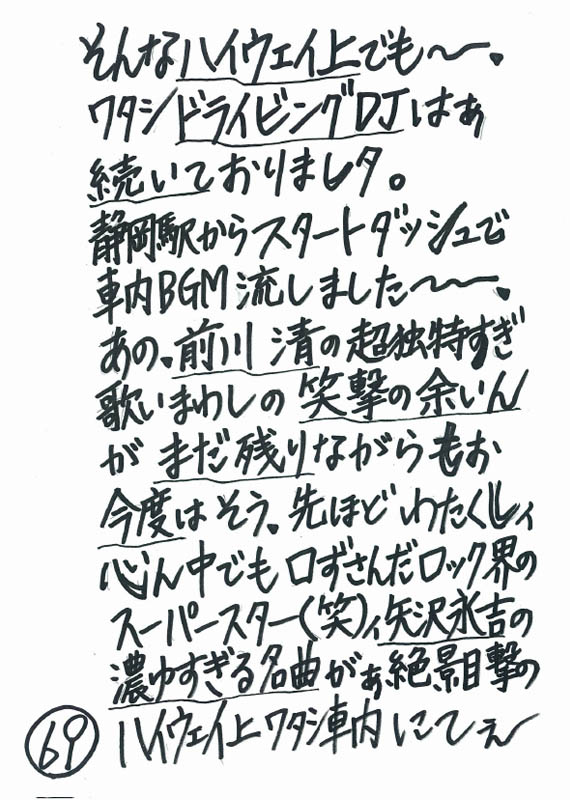 そんなハイウェイ上でも〜〜、
ワタシドライビングDJはぁ
続いておりましタ。
静岡駅からスタートダッシュで
車内BGM流しました〜〜、
あの、前川 清の超独特すぎ
歌いまわしの 笑撃の余いん
が まだ残りながらもお
今度は そう。先ほど わたくしィ
心ん中でも 口ずさんだロック界の
スーパースター(笑)ィ矢沢永吉の
濃ゆすぎる名曲がぁ絶景目撃の
ハイウェイ上ワタシ車内 にてぇ〜
69